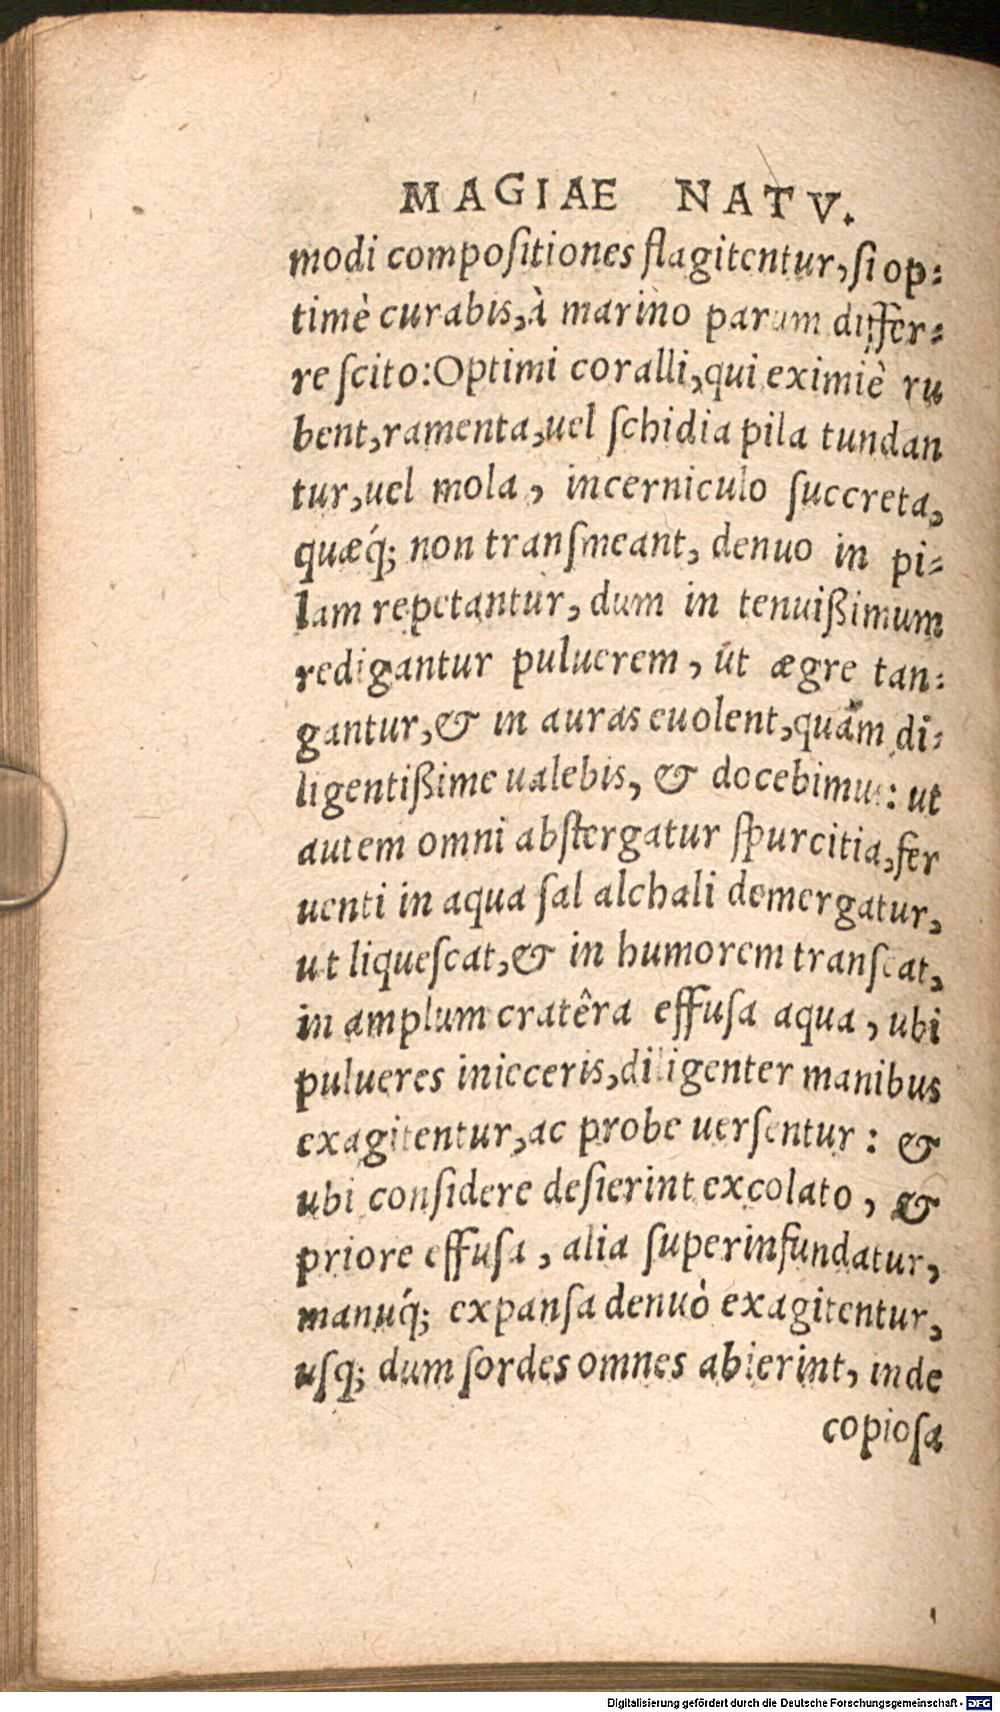 MAGIAE NATV.
modi compoſitiones flagitentur, ſi op-
timè curabis, à marino parum differ-
re ſcito: Optimi coralli, qui eximiè ru
bent, ramenta, uel ſchidia pila tundan
tur, uel mola, incerniculo ſuccreta,
quæq́; non tranſmeant, denuo in pi-
lam repetantur, dum in tenuißimum
redigantur puluerem, ut ægre tan-
gantur, & in auras euolent, quàm di-
ligentißime ualebis, & docebimus: ut
autem omni abſtergatur ſpurcitia, fer
uenti in aqua ſal alchali demergatur,
ut liqueſcat, & in humorem tranſeat,
in amplum cratêra effuſa aqua, ubi
pulueres inieceris, diligenter manibus
exagitentur, ac probe uerſentur: &
ubi conſidere deſierint excolato, &
priore effuſa, alia ſuperinfundatur,
manuq́; expanſa denuò exagitentur,
uſq; dum ſordes omnes abierint, inde
copioſa
Digitalisierung gefördert durch die Deutsche Forschungsgemeinschaft - DFG